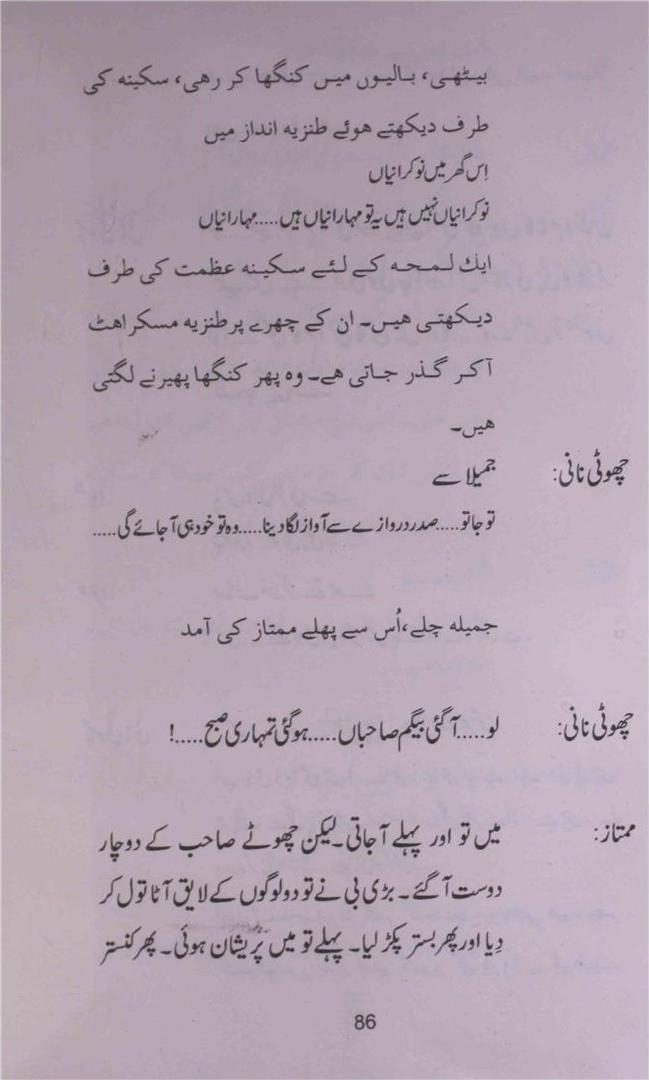 بیٹھی، بالیوں میں کنگھا کر رھی، سکینہ کی
طرف دیکھتے ھوئے طنزیہ انداز میں
اِس گھر میں نوکرانیاں
نوکرانیاں نہیں ہیں یہ تو مہارانیاں ہیں.....مہارانیاں
ایك لمحہ کے لئے سکینہ عظمت کی طرف
دیکھتی ھیں۔ ان کے چھرے پر طنزیہ مسکراھٹ
آکر گذر جاتی ھے۔ وہ پھر کنگھا پھیرنے لگتی
ھیں۔
چھوٹی نانی: جمیلا سے
تو جا تو.....صدر دروازے سے آواز لگا دینا.....وہ تو خود ہی آ جائے گی.....
جمیلہ چلے، اُس سے پھلے ممتاز کی آمد
چھوٹی نانی: لو.....آ گئی بیگم صاحباں.....ہوگئی تمہاری صبح.....!
ممتاز: میں تو اور پہلے آجاتی۔ لیکن چھوٹے صاحب کے دوچار
دوست آگئے۔ بڑی بی نے تو دو لوگوں کے لایق آٹا تول کر
دِیا اور پھر بستر پکڑ لیا۔ پہلے تو میں پریشان ہوئی۔ پھر کنستر
86